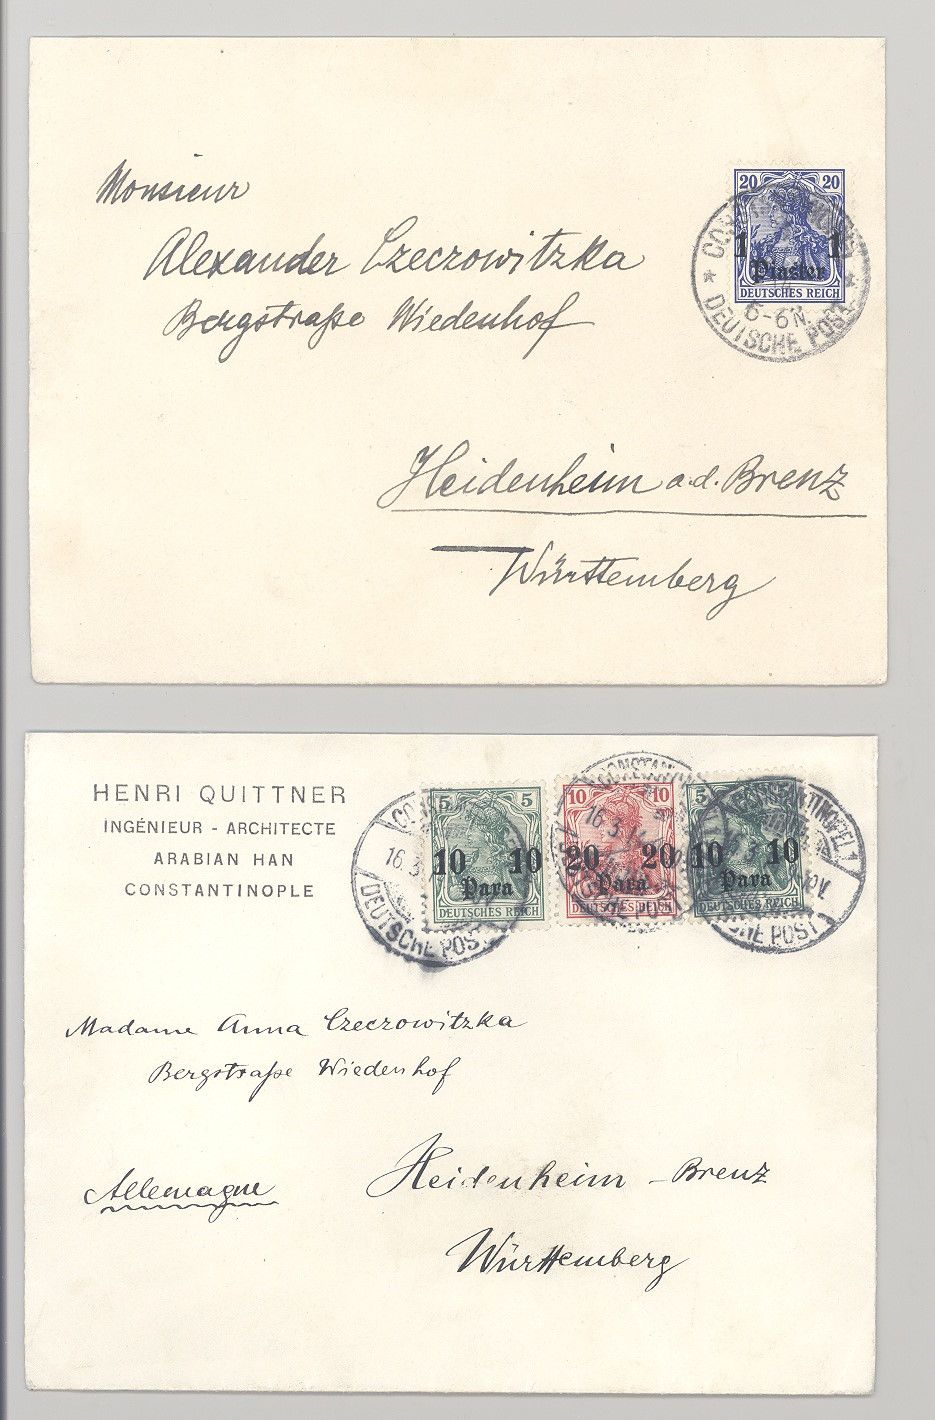 Monsieur
Alexander Czeczowitzka
Bergstraße Wiedenhof
Heidenheim a.d. Brenz
Württemberg
20 20
1 1
Piaster
DEUTSCHES REICH
6-6N.
DEUTSCHE POST
HENRI QUITTNER
INGÉNIEUR - ARCHITECTE
ARABIAN HAN
CONSTANTINOPLE
5 5
10 10
Para
DEUTSCHES REICH
16.3
DEUTSCHE POST
10 10
20 20
Para
DEUTSCHES REICH
16.3.14
5
10 10
Para
DEUTSCHES REICH
CONSTANTINOPEL 1
Madame Anna Czeczowitzka
Bergstraße Wiedenhof
Allemagne
Heidenheim - Brenz
Württemberg